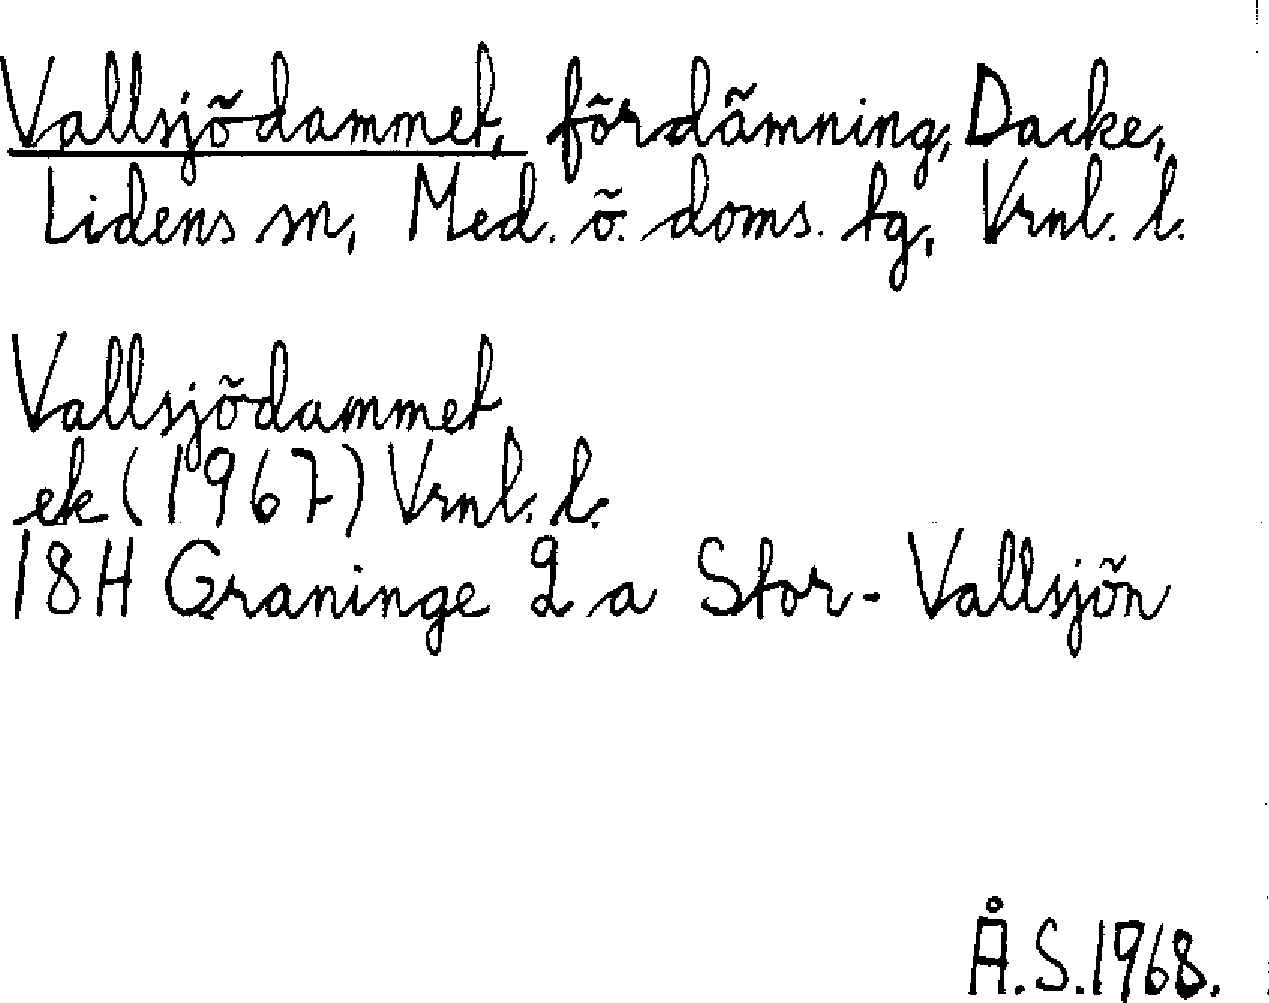 Vallsjödammet, fördämning, Dacke,
Lidens sn, Med. ö. doms. tg, Vrnl. l.
Vallsjödammet
ek (1967) Vrnl. l.
18H Graninge 2 a Stor-Vallsjön
Å.S.1968.